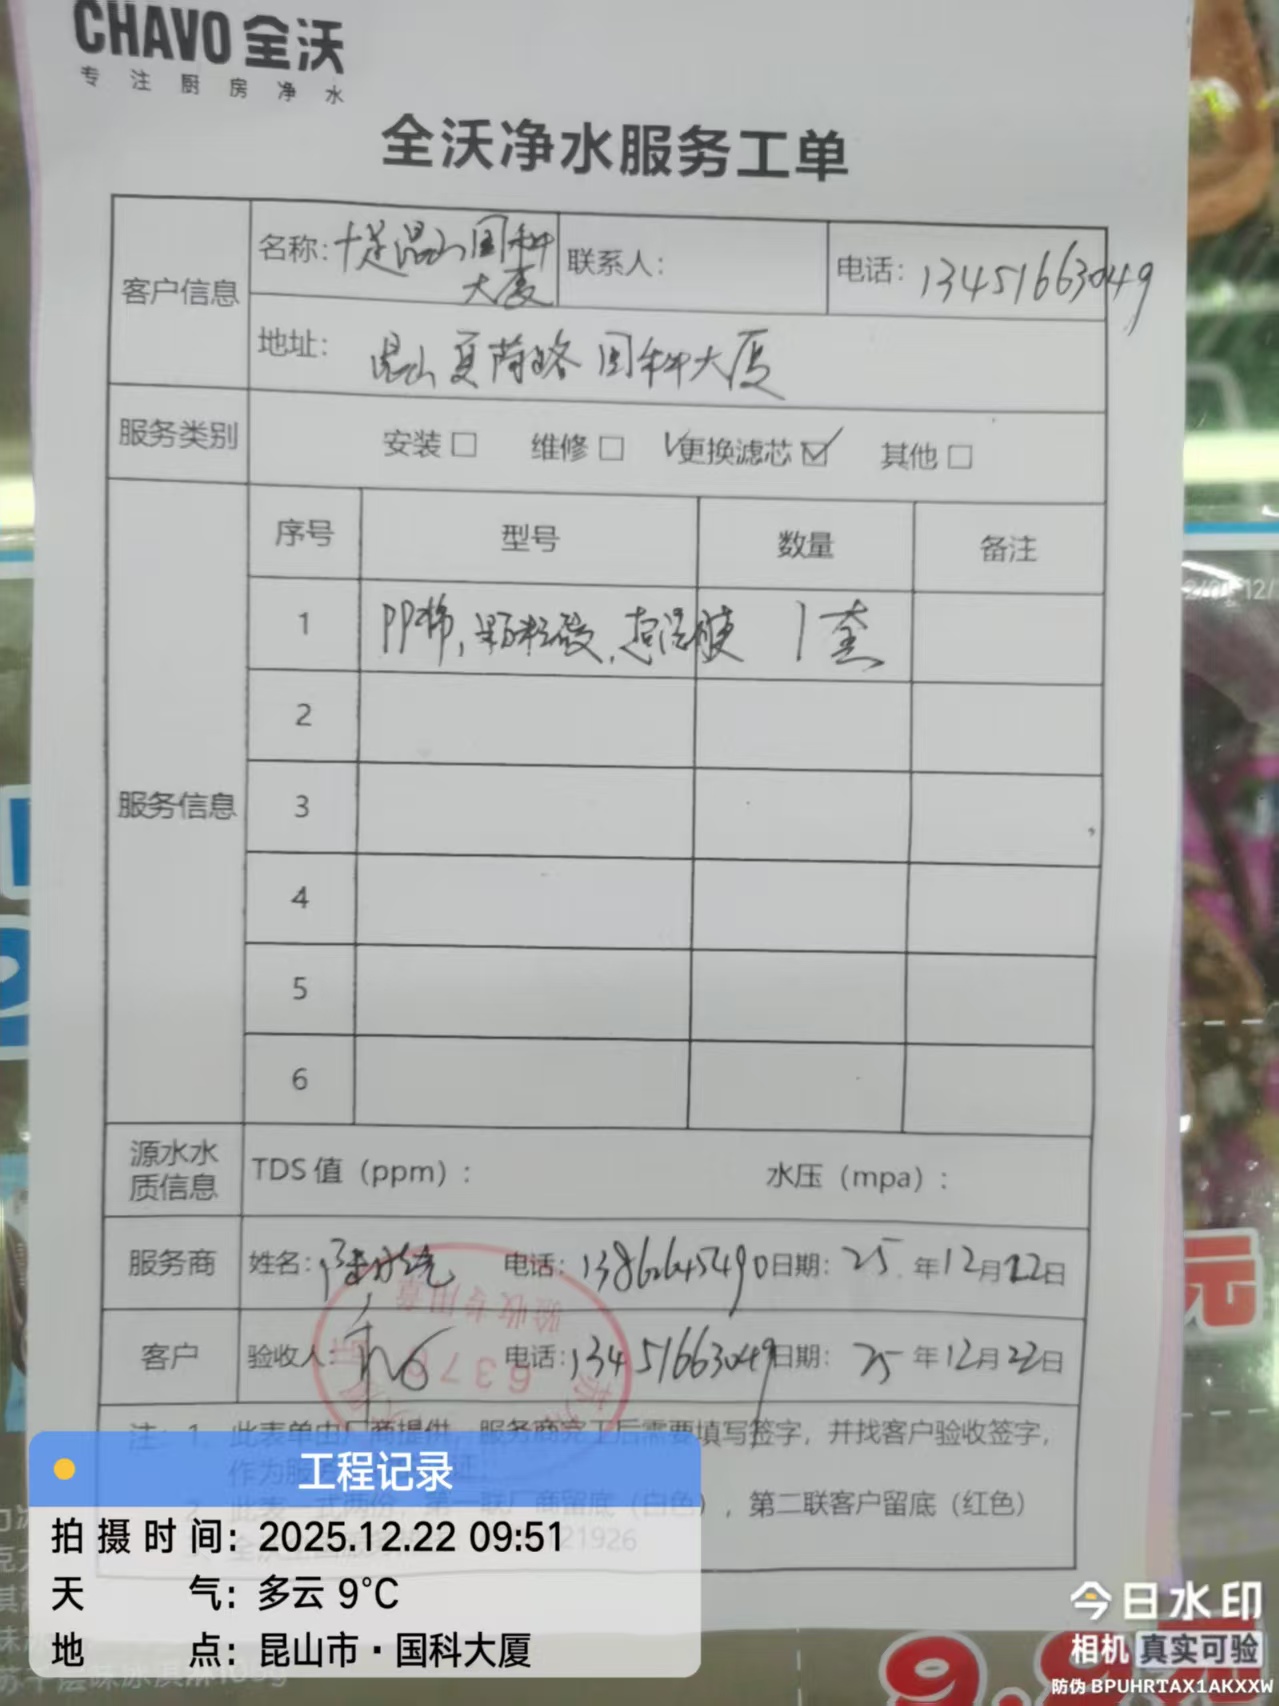 CHAVO 全沃
专注厨房净水
全沃净水服务工单
客户信息
名称: 十足昆山国科大厦
联系人:
电话: 13451663049
地址: 昆山夏荷路国科大厦
服务类别
安装□ 维修□ √更换滤芯☑ 其他□
服务信息
序号 型号 数量 备注
1 PP棉, 颗粒碳, 1套
2
3
4
5
6
源水水质信息
TDS 值 (ppm): 水压 (mpa):
服务商 姓名: 电话: 13862645490 日期: 25 年 12 月 22 日
客户 验收人: 电话: 13451663049 日期: 25 年 12 月 22 日
验收专用章
注: 1、此表单由厂商提供, 服务商完工后需要填写签字, 并找客户验收签字,
作为服
2、此表一式两份, 第一联厂商留底 (白色), 第二联客户留底 (红色)
121926
工程记录
拍摄时间: 2025.12.22 09:51
天气: 多云 9℃
地点: 昆山市·国科大厦
今日水印
相机 真实可验
防伪 BPUHRTAX1AKXXW
元
9.9元